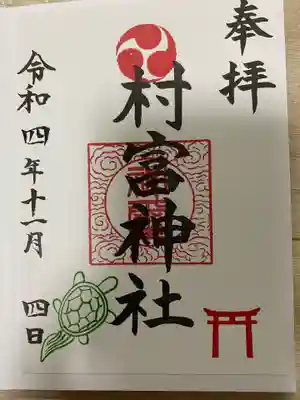 奉拝
村富神社
令和四年十一月 四日